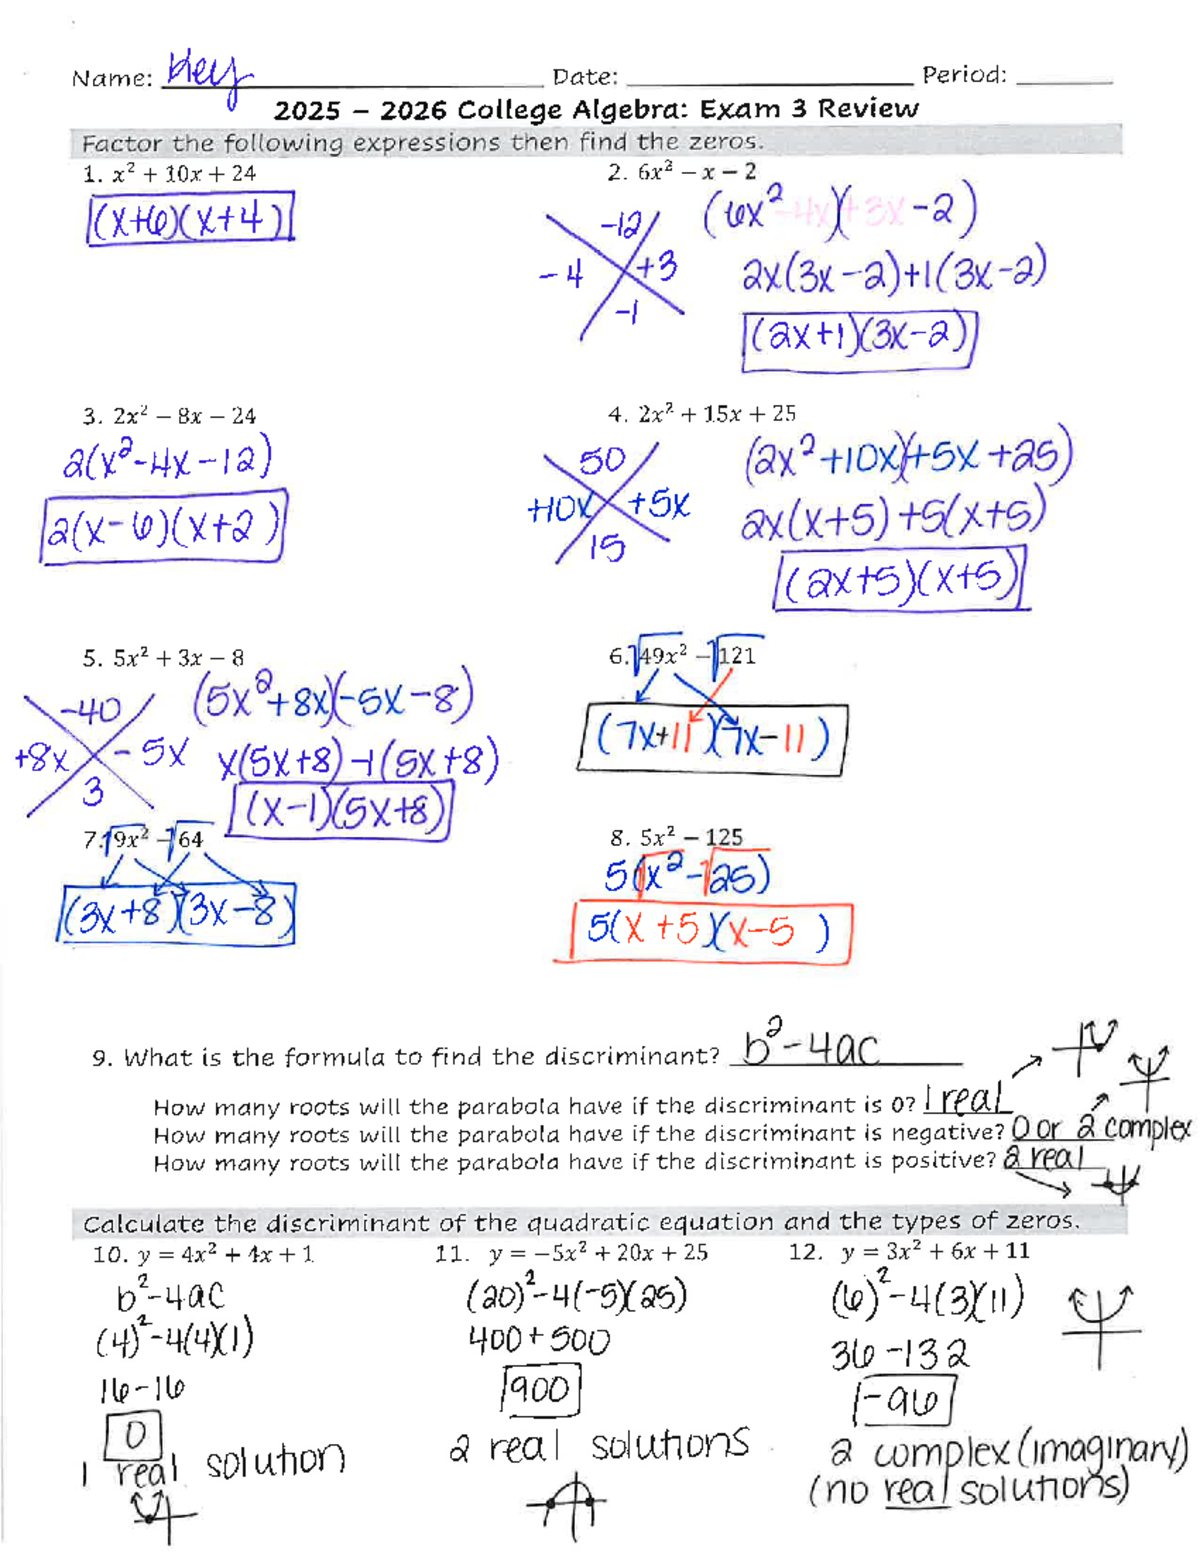 Name: Key Date: Period:
2025 – 2026 College Algebra: Exam 3 Review
Factor the following expressions then find the zeros.
1. x² + 10x + 24
(x+6)(x+4)
2. 6x² − x − 2
-12
-4 +3
-1
(6x² -4x)(+3x -2)
2x(3x-2)+1(3x-2)
(2x+1)(3x-2)
3. 2x² − 8x − 24
2(x²-4x-12)
2(x-6)(x+2)
4. 2x² + 15x + 25
50
+10x +5x
15
(2x²+10x)(+5x+25)
2x(x+5)+5(x+5)
(2x+5)(x+5)
5. 5x² + 3x − 8
-40
+8x -5x
3
(5x²+8x)(-5x-8)
x(5x+8)-1(5x+8)
(x-1)(5x+8)
6. √49x² − √121
(7x+11)(7x-11)
7. √9x² − √64
(3x+8)(3x-8)
8. 5x² − 125
5(√x²-√25)
5(x+5)(x-5)
9. What is the formula to find the discriminant? b²-4ac
How many roots will the parabola have if the discriminant is 0? 1 real
How many roots will the parabola have if the discriminant is negative? 0 or 2 complex
How many roots will the parabola have if the discriminant is positive? 2 real
Calculate the discriminant of the quadratic equation and the types of zeros.
10. y = 4x² + 4x + 1
b²-4ac
(4)²-4(4)(1)
16-16
0
1 real solution
11. y = −5x² + 20x + 25
(20)²-4(-5)(25)
400+500
900
2 real solutions
12. y = 3x² + 6x + 11
(6)²-4(3)(11)
36-132
-96
2 complex (imaginary)
(no real solutions)